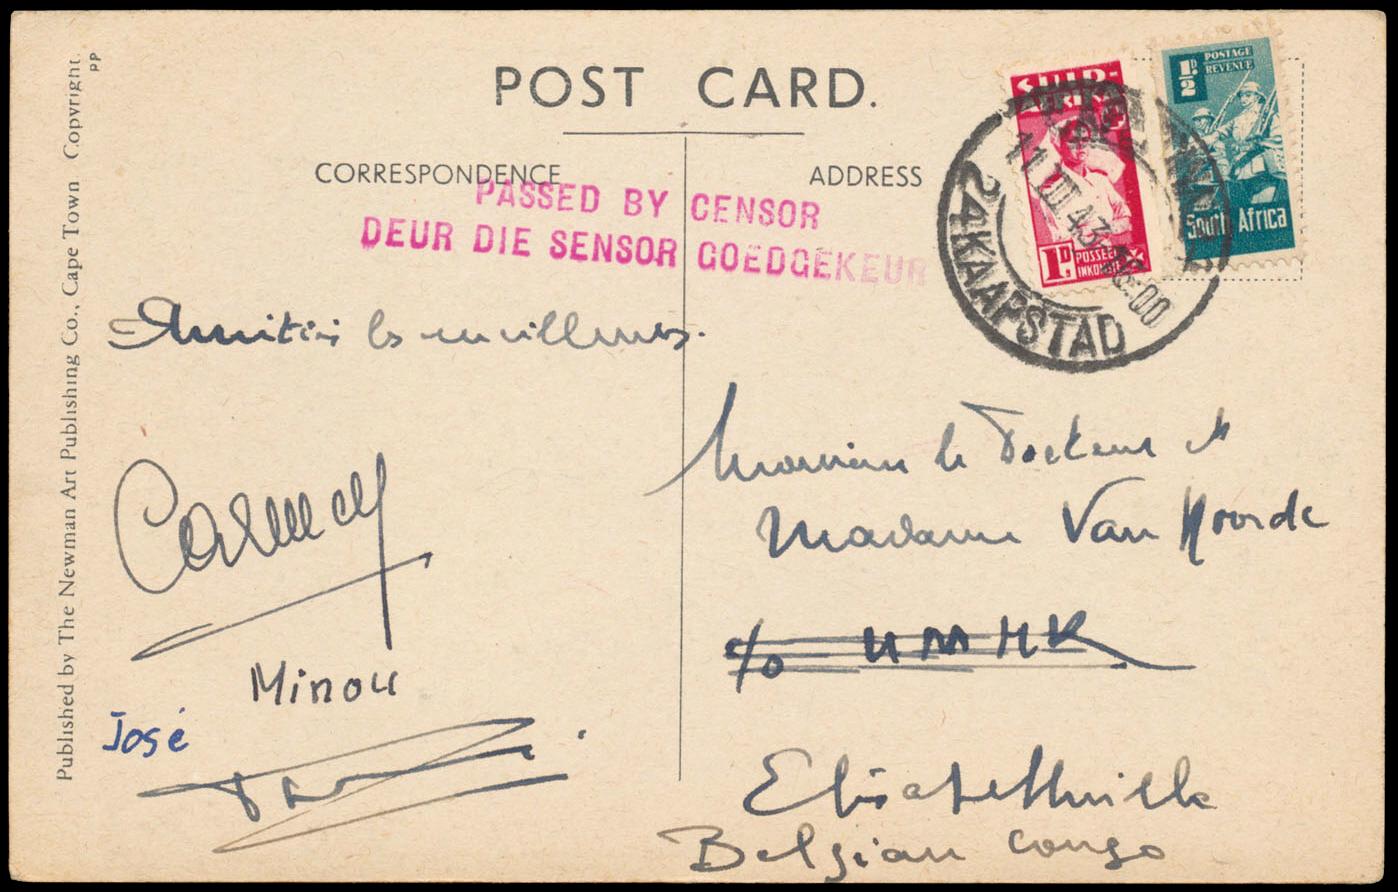 POST CARD.
CORRESPONDENCE
ADDRESS
PASSED BY CENSOR
DEUR DIE SENSOR GOEDGEKEUR
SUID-
AFRIKA
1D.
POSSEËL
INKOMSTE
½D.
POSTAGE
REVENUE
South Africa
11 III 43 -16:00
24 KAAPSTAD
Amitiés les meilleures.
Monsieur le Docteur et
Madame Van Hoorde
c/o UMHK
Elisabethville
Belgian Congo
Minou
José
Published by The Newman Art Publishing Co., Cape Town Copyright.
PP